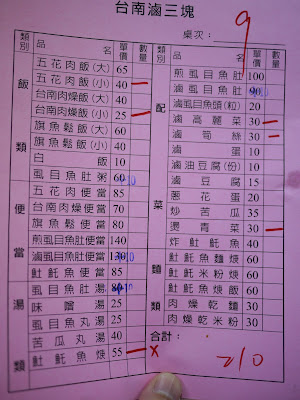 台南滷三塊
桌次: 9
類別 品名 單價 數量
飯類
五花肉飯(大) 65
五花肉飯(小) 40 —
台南肉燥飯(大) 40
台南肉燥飯(小) 25 —
旗魚鬆飯(大) 60
旗魚鬆飯(小) 40
白飯 10
虱目魚肚粥 60
便當
五花肉便當 85
台南肉燥便當 70
旗魚鬆便當 80
煎虱目魚肚便當 140
滷虱目魚肚便當 130
魠魠魚便當 85
湯類
虱目魚肚湯 80
味噌湯 25
虱目魚丸湯 30
苦瓜丸湯 40
魠魠魚焿 55 — x
類別 品名 單價 數量
配菜
煎虱目魚肚 100
滷虱目魚肚 90
滷虱目魚頭(粒) 20
滷高麗菜 30 —
滷筍絲 30 —
滷蛋 10
滷油豆腐(份) 10
滷豆腐 15
蔥花蛋 20
炒苦瓜 35
燙青菜 30 —
炸魠魠魚 40
麵類
魠魠魚麵焿 60
魠魠魚米粉焿 60
魠魠魚飯焿 60
肉燥乾麵 30
肉燥乾米粉 30
合計: 210